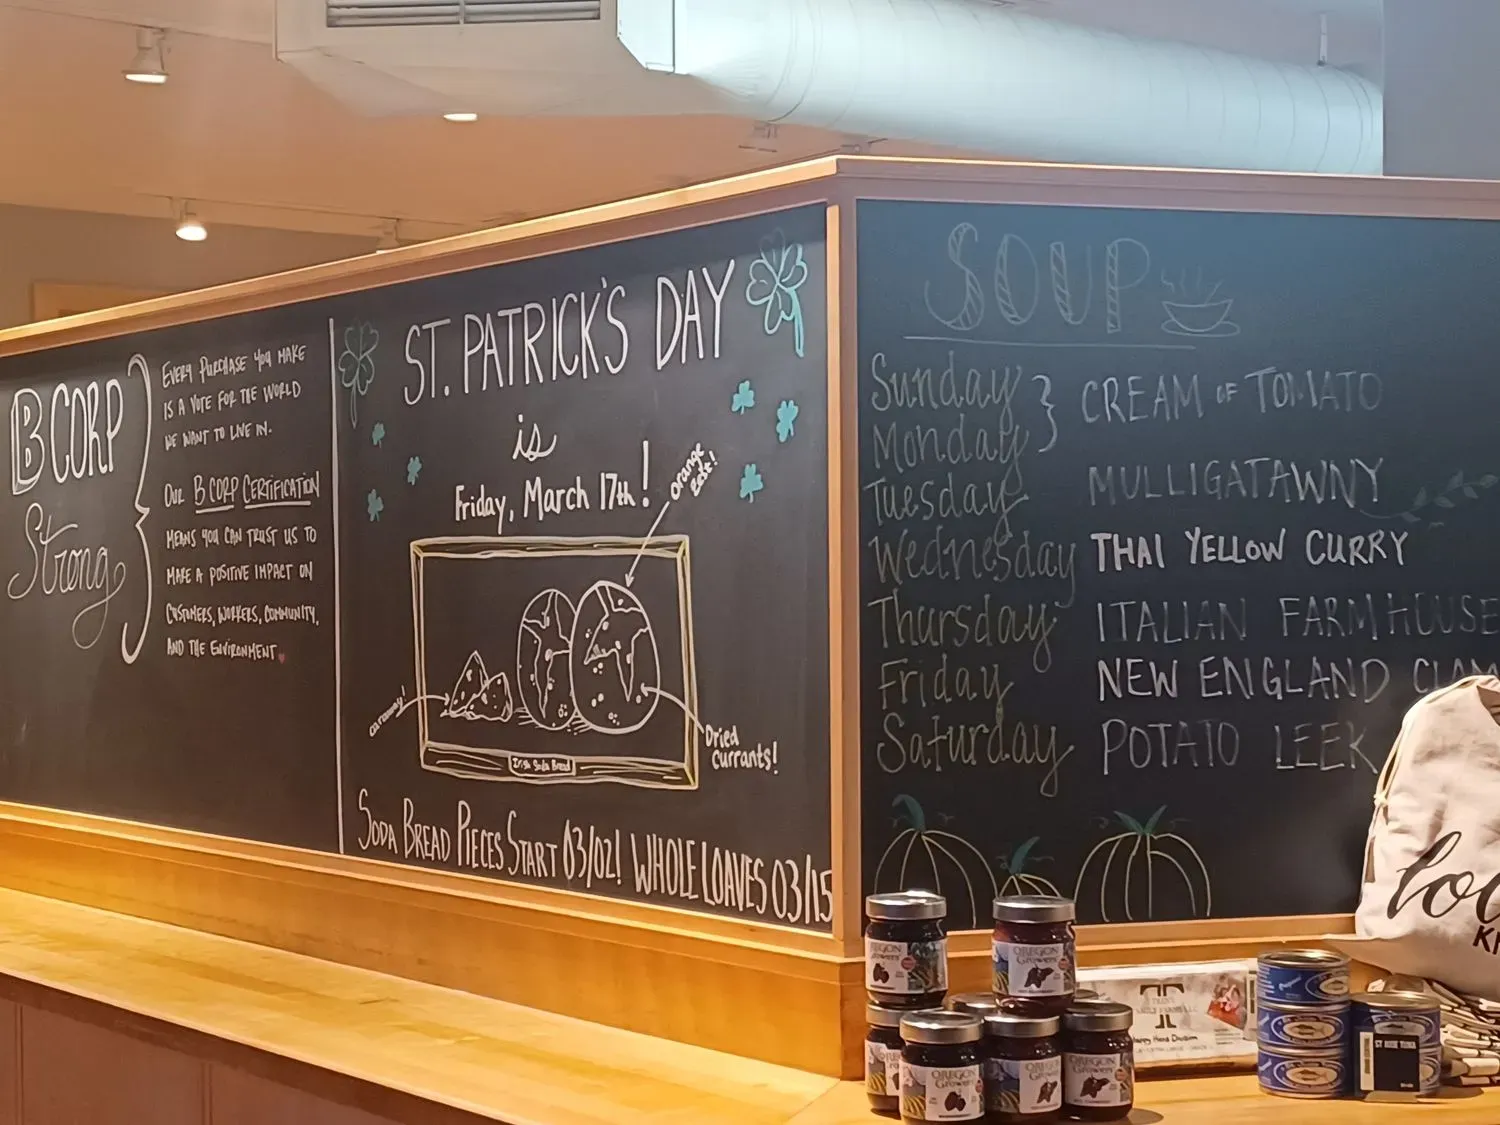 B CORP
Strong
EVERY PURCHASE YOU MAKE
IS A VOTE FOR THE WORLD
WE WANT TO LIVE IN.
OUR B CORP CERTIFICATION
MEANS YOU CAN TRUST US TO
MAKE A POSITIVE IMPACT ON
CUSTOMERS, WORKERS, COMMUNITY,
AND THE ENVIRONMENT.
ST. PATRICK'S DAY
is
Friday, March 17th!
orange
zest!
caraway!
Dried
currants!
Irish Soda Bread
SODA BREAD PIECES START 03/02! WHOLE LOAVES 03/15
SOUP
Sunday
Monday
CREAM OF TOMATO
Tuesday MULLIGATAWNY
Wednesday THAI YELLOW CURRY
Thursday ITALIAN FARMHOUSE
Friday NEW ENGLAND CLAM
Saturday POTATO LEEK
OREGON
Growers
OREGON
Growers
OREGON
Growers
OREGON
Growers
OREGON
Growers